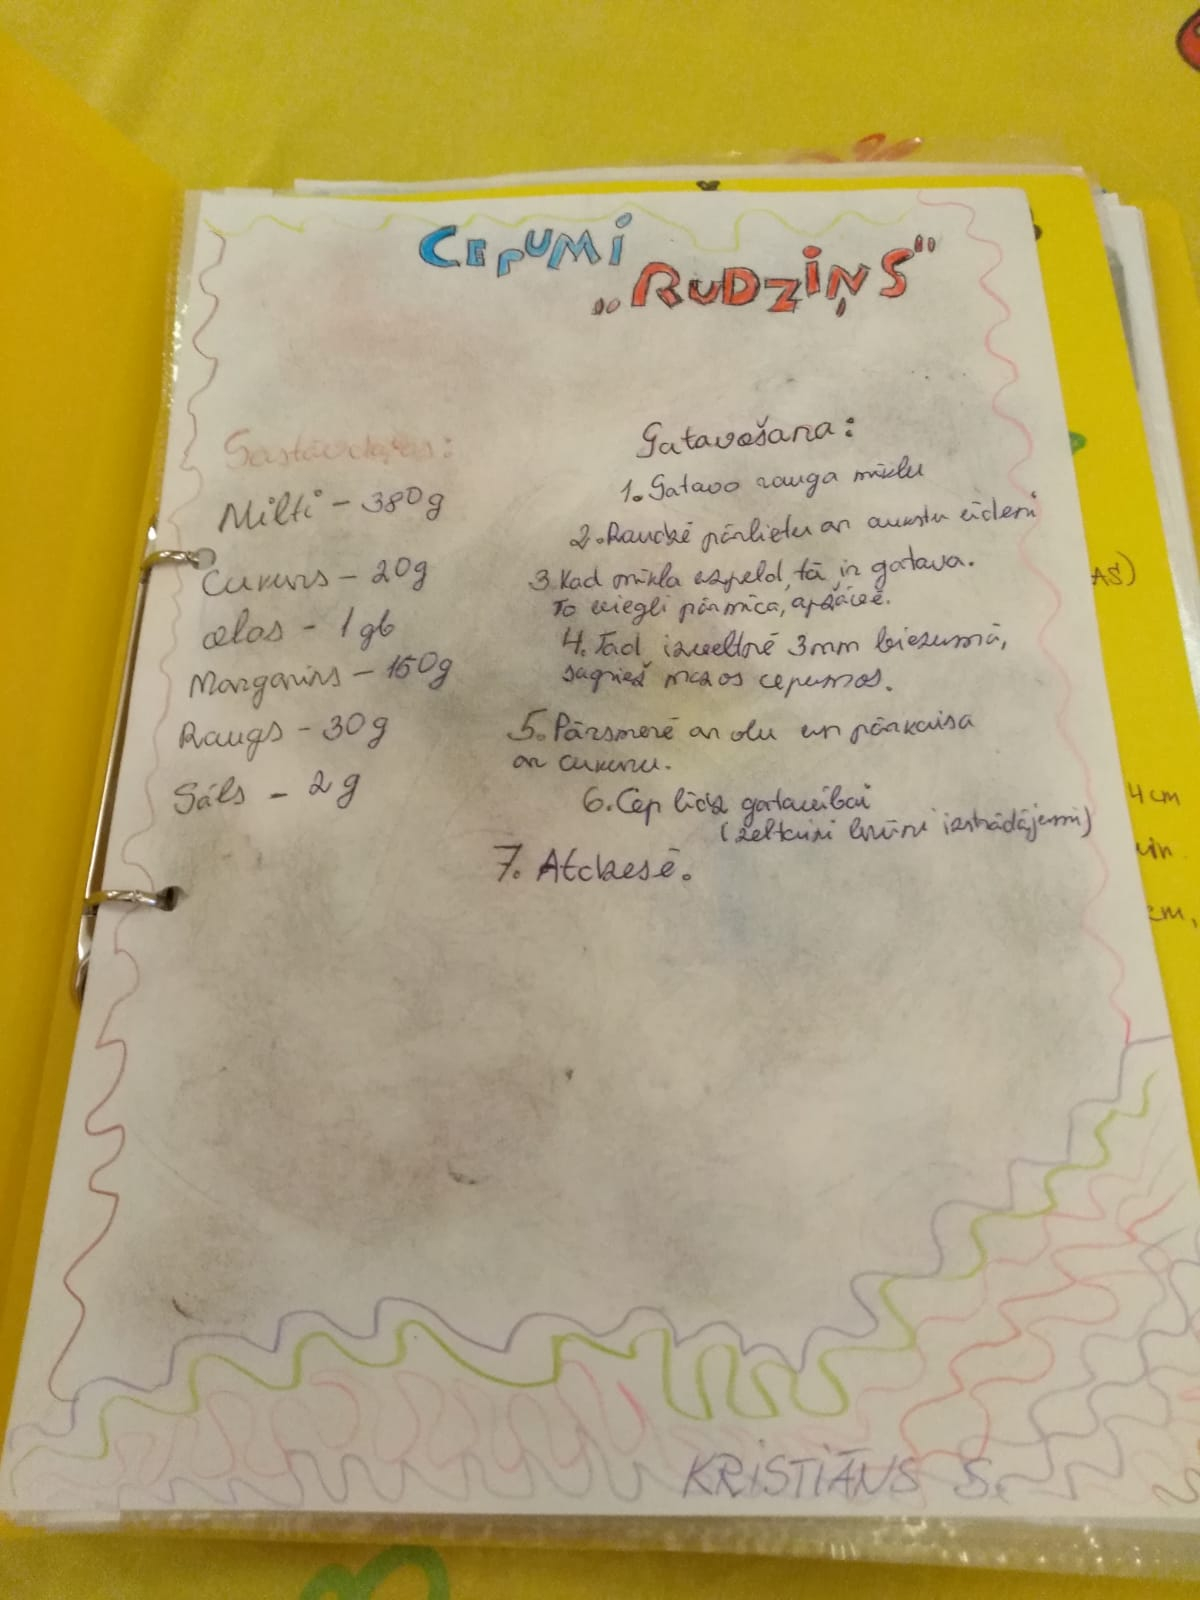 CEPUMI
„RUDZIŅŠ"
Sastāvdaļas:
Milti – 380g
Cukurs – 20g
olas – 1 gb
Margarīns – 150g
Raugs – 30g
Sāls – 2g
Gatavošana:
1. Gatavo rauga mīklu
2. Raudzē pārlietu ar aukstu ūdeni
3. Kad mīkla uzpeld, tā ir gatava.
To viegli pārmīca, apžāvē.
4. Tad izveltnē 3mm biezumā,
sagriež mazos cepumos.
5. Pārsmērē ar olu un pārkaisa
ar cukuru.
6. Cep līdz gatavībai
(zeltaini brūni izstrādājumi)
7. Atdzesē.
KRISTIĀNS S.
AS)
4 cm